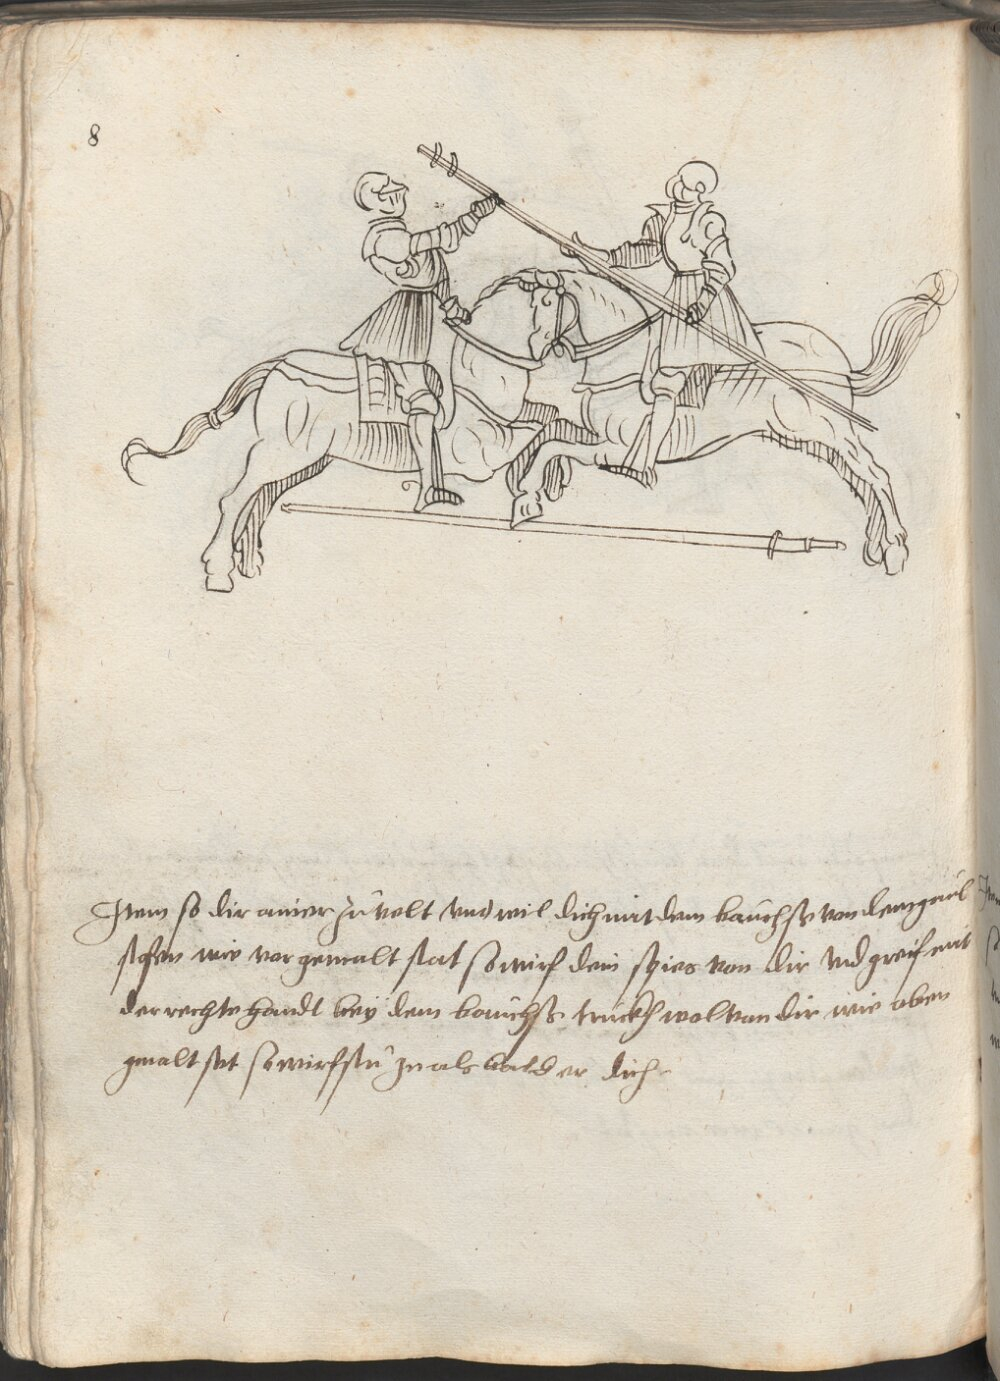 8
Item so dir ainer zů velt vnd wil dich mit dem bauchs von dem gaul
stossen wie vor gemalt stat so wirf dein spies von dir vnd greif mit
der rechte handt bey dem bauchs truckh wol von dir wie oben
gmalt stet so wirfstu in als bald er dich